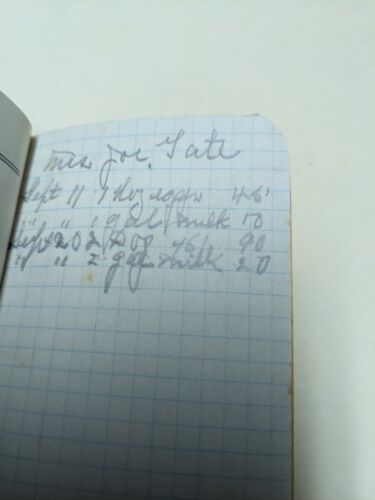 Mrs Joe. Tate
Sept 11 1 Doz eggs 45
" " 1 milk 10
Sept 20 2 Doz 45 90
" " 2 milk 20